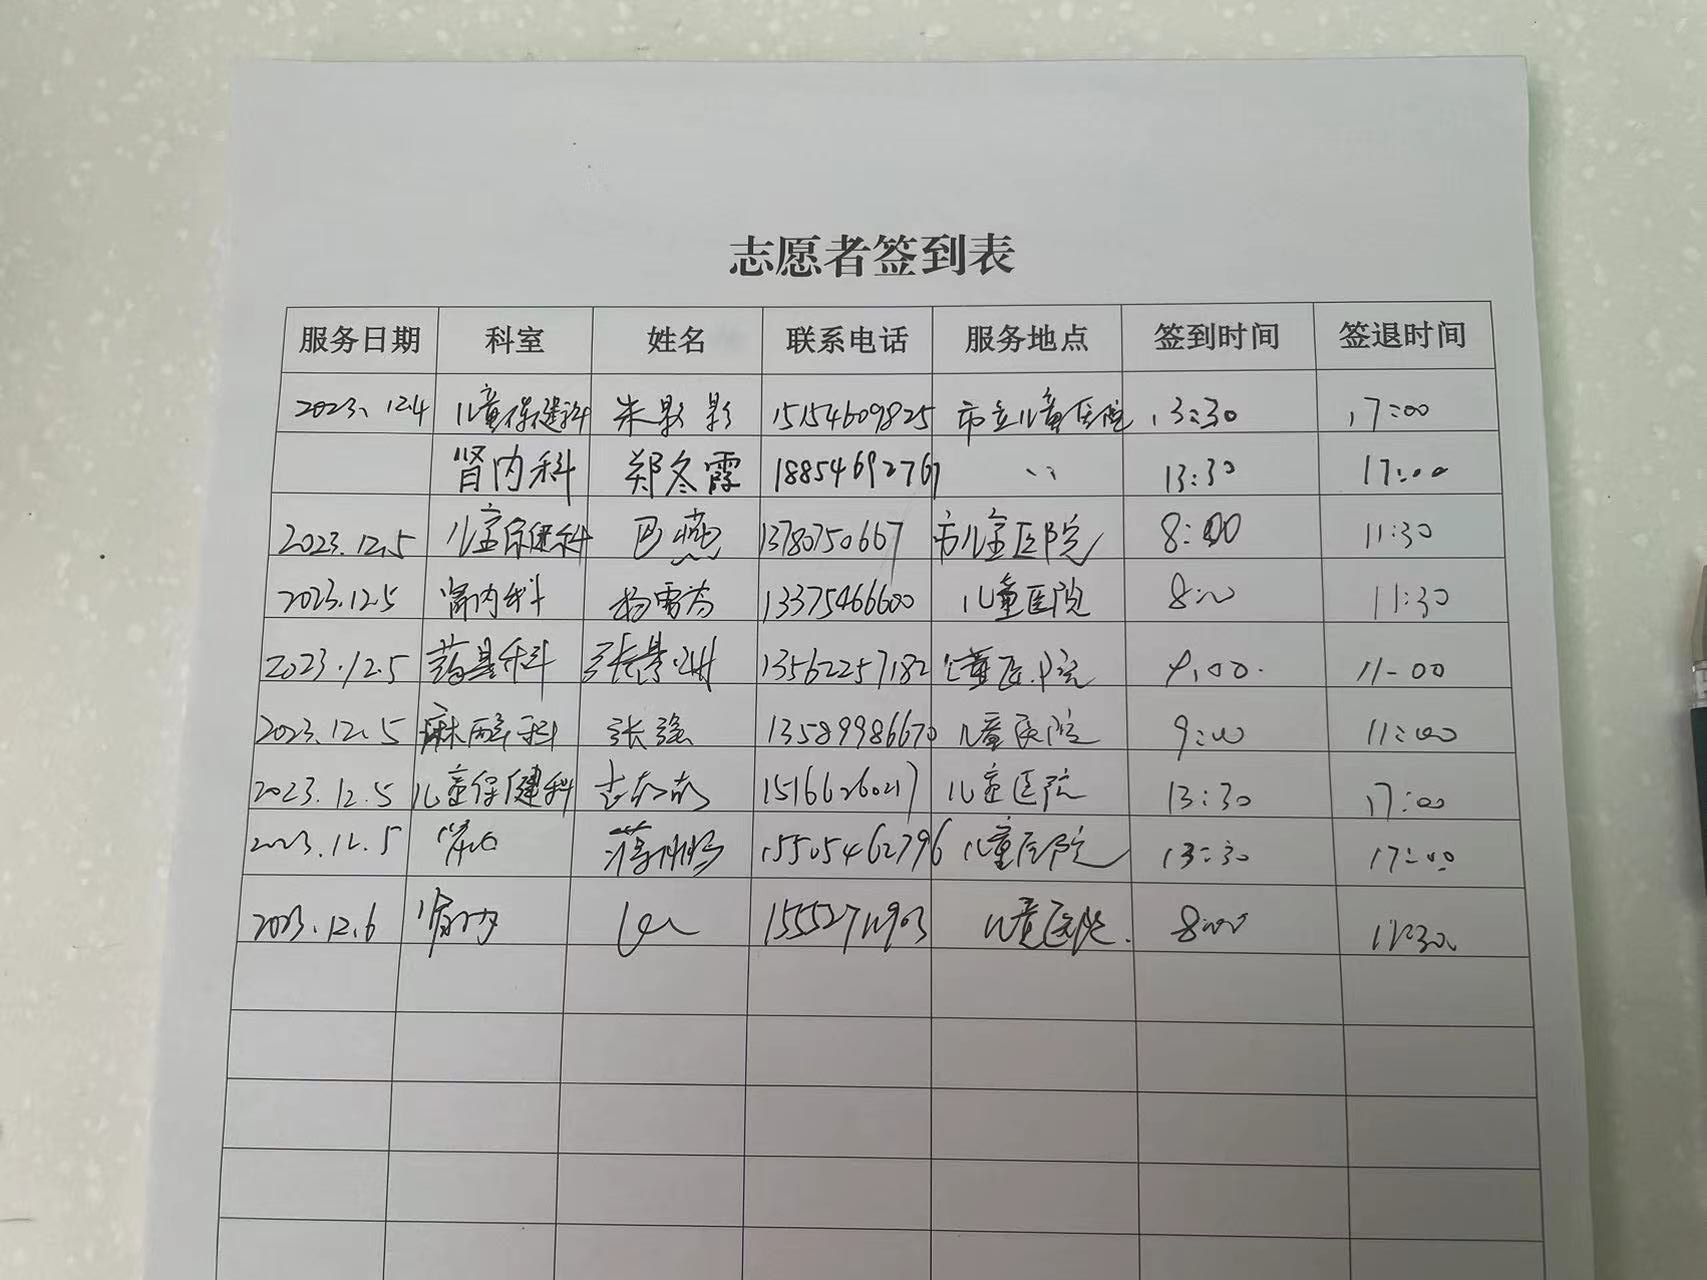 志愿者签到表
服务日期 科室 姓名 联系电话 服务地点 签到时间 签退时间
2023.12.4 儿童保健科 朱影影 15154609825 市立儿童医院 13:30 17:00
肾内科 郑冬霞 18854692767 、、 13:30 17:00
2023.12.5 儿童保健科 巴燕 13780750667 市儿童医院 8:00 11:30
2023.12.5 肾内科 杨雪芳 13375466600 儿童医院 8:00 11:30
2023.12.5 药具科 13562257182 儿童医院 9:00. 11-00
2023.12.5 麻醉科 张强 13589986670 儿童医院 9:00 11:00
2023.12.5 儿童保健科 15166260217 儿童医院 13:30 17:00
2023.12.5 肾内 15505462796 儿童医院 13:30 17:00
2023.12.6 肾内 儿童医院. 8:00 11:30